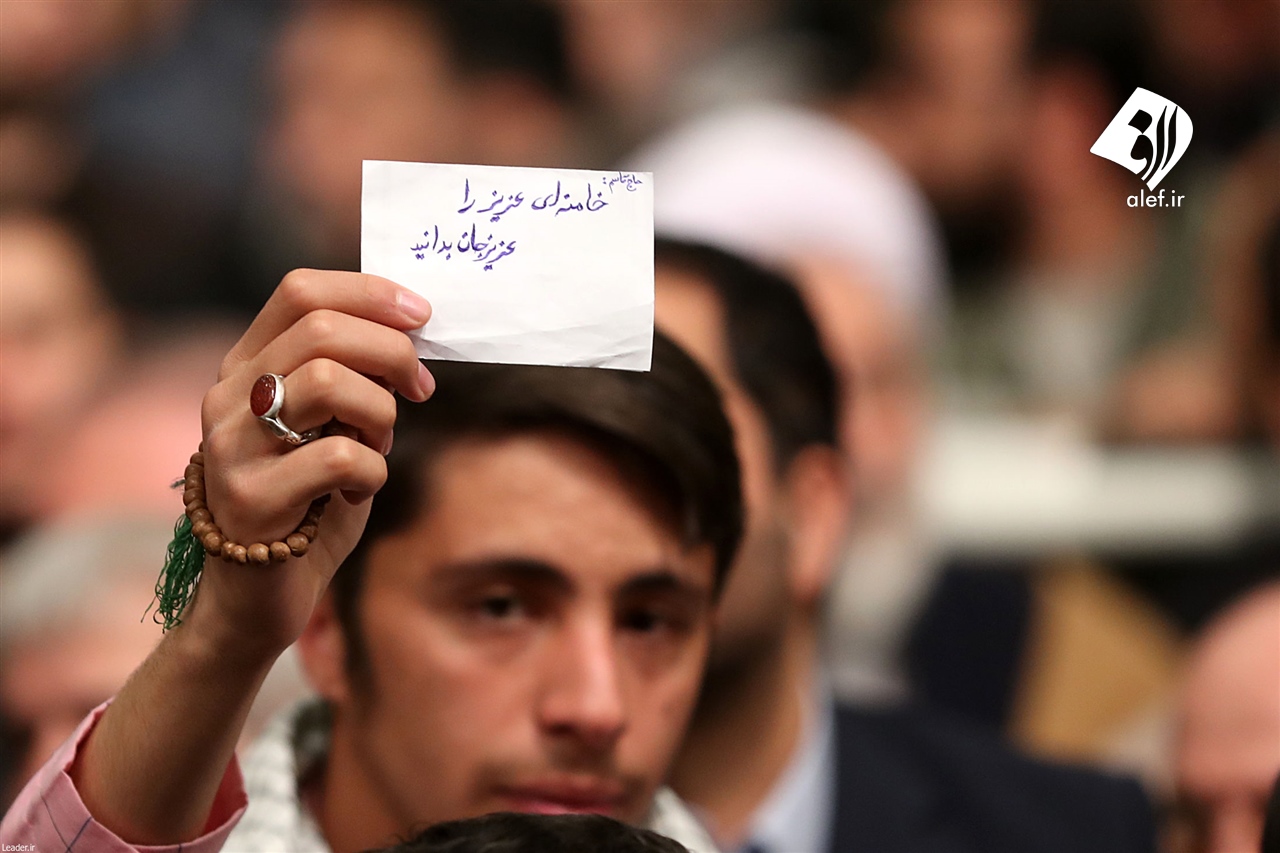 حاج قاسم:
خامنه‌ای عزیز را
عزیز جان بدانید
الف
alef.ir
Leader.ir